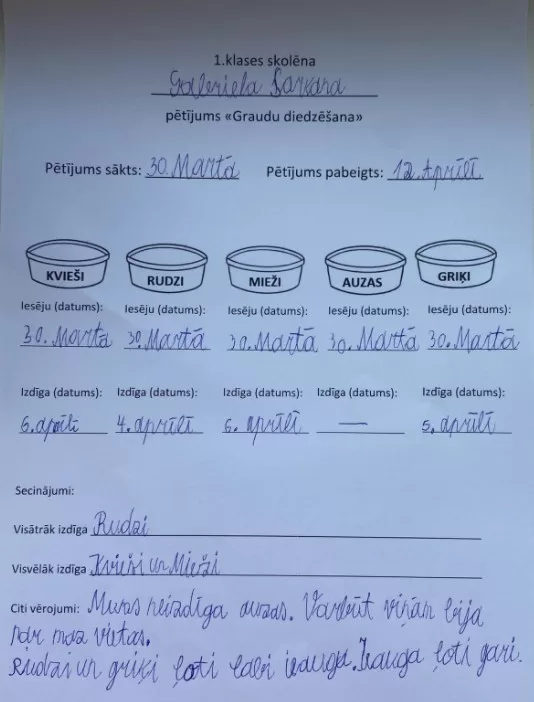 1.klases skolēna
pētījums «Graudu diedzēšana»
Pētījums sākts: 30. Martā Pētījums pabeigts: 12. Aprīlī
KVIEŠI RUDZI MIEŽI AUZAS GRIĶI
Iesēju (datums): Iesēju (datums): Iesēju (datums): Iesēju (datums): Iesēju (datums):
30. Martā 30. Martā 30. Martā 30. Martā 30. Martā
Izdīga (datums): Izdīga (datums): Izdīga (datums): Izdīga (datums): Izdīga (datums):
6. aprīlī 4. aprīlī 6. aprīlī — 5. aprīlī
Secinājumi:
Visātrāk izdīga Rudzi
Visvēlāk izdīga Kvieši un Mieži
Citi vērojumi: Mums neizdīga auzas. Varbūt viņām bija
par maz vietas.
Rudzi un griķi ļoti labi izauga. Izauga ļoti gari.